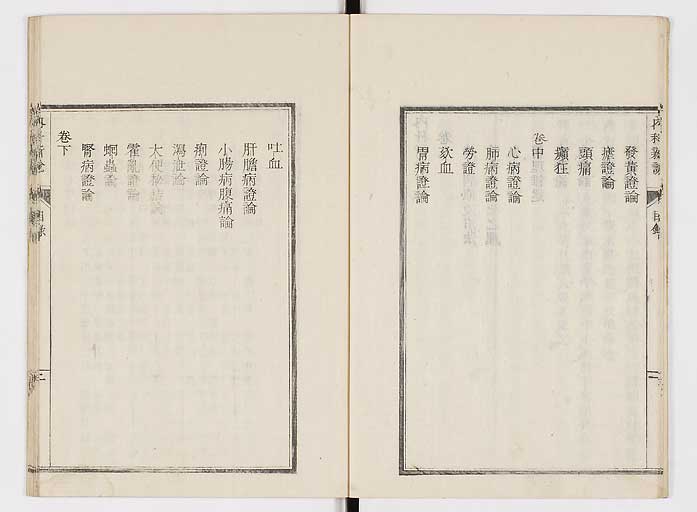 發黃證論
瘧證論
頭痛論
癲狂
卷中
心病證論
肺病證論
勞證
欬血
胃病證論
吐血
肝膽病證論
小腸病腹痛論
痢證論
瀉泄論
大便秘結論
霍亂證論
蛔蟲論
腎病證論
卷下